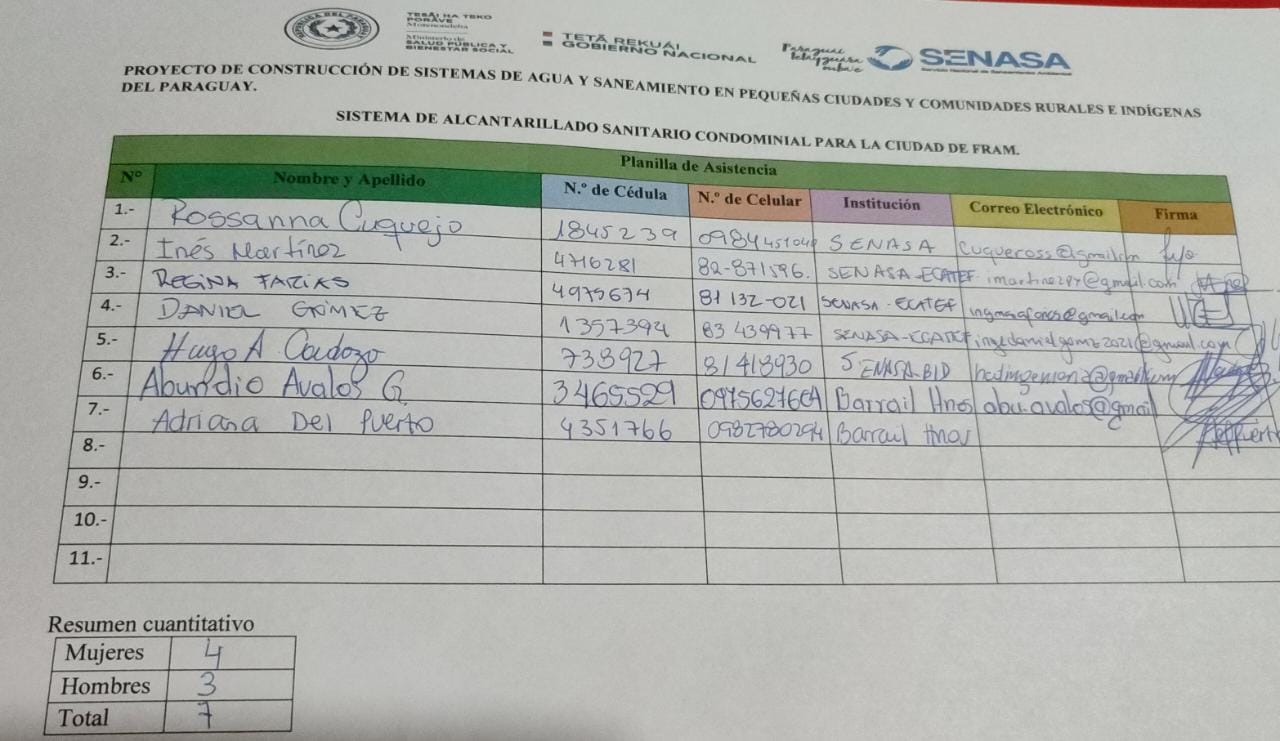 REPUBLICA DEL PARAGUAY
TESÃI HA TEKO
PORÃVE
Motenondeha
Ministerio de
SALUD PÚBLICA Y
BIENESTAR SOCIAL
TETÃ REKUÁI
GOBIERNO NACIONAL
Paraguay
SENASA
Servicio Nacional de Saneamiento Ambiental
PROYECTO DE CONSTRUCCIÓN DE SISTEMAS DE AGUA Y SANEAMIENTO EN PEQUEÑAS CIUDADES Y COMUNIDADES RURALES E INDÍGENAS
DEL PARAGUAY.
SISTEMA DE ALCANTARILLADO SANITARIO CONDOMINIAL PARA LA CIUDAD DE FRAM.
Planilla de Asistencia
Nº Nombre y Apellido N.º de Cédula N.º de Celular Institución Correo Electrónico Firma
1.- Rossanna Cuquejo 1845239 0984 SENASA
2.- Inés Martínez 4716281 82-871596. SENASA-ECATEF
3.- REGINA 4975674 81 132-021 SENASA-ECATEF
4.- DANIEL GÓMEZ 1357394 83 439977 SENASA-ECATEF ingedanielgomez2021@gmail.com
5.- Hugo A Cardozo 738927 81 418930 SENASA-BID
6.- Abundio Avalos G. 3465529 0975627664 Barrail Hnos abu.avalos@gmail
7.- Adriana Del Puerto 4351766 0982780294 Barrail Hnos
8.-
9.-
10.-
11.-
Resumen cuantitativo
Mujeres 4
Hombres 3
Total 7